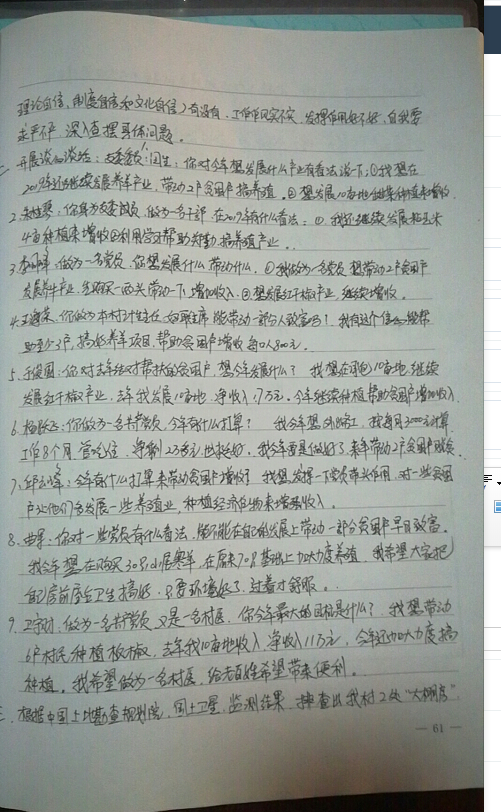 理论自信、制度自信和文化自信)有没有,工作作风实不实,发挥作用好不好,自我要
求严不严,深入查摆具体问题。
二、开展谈心谈话:支委委员:国生:你对今年想发展什么产业有看法谈一下:①我想在
2019年还继续发展养羊产业,带动2户贫困户搞养殖,②想发展10亩地 种植来增收
2、你身为支委成员,做为一名干部,在2019年有什么看法:①我还继续发展 玉米
4亩种植来增收②利用学习帮助 搞养殖产业。
3、做为一名党员,你想发展什么,带动什么,①我做为一名党员想带动2户贫困户
发展养牛产业,先购买一两头带动一下,增加收入,②想发展红干椒产业,继续增收。
4、王 你做为本村计生主任、妇联主席,能带动一部分人致富吗?我有这个信 能帮
助至少3户,搞好养羊项目,帮助贫困户增收每口人800元。
5、于 国:你对去年结对帮扶的贫困户,想今年发展什么?我想在 10亩地,继续
发展红干椒产业,去年我发展10亩地,净收入1.7万元,今年继续种植帮助贫困户增加收入
6、杨 :你做为一名共产党员,今年有什么打算?我今年想外出务工,按每月3000元计算
工作8个月,管吃住,净剩2.3万元也挺好,我今年要是做好了,来年带动2户贫困户
7、邱 :今年有什么打算来带动贫困户增收?我想发挥一下党员带头作用,对一些贫困
户让他们多发展一些养殖业,种植经济作物来增加收入。
8、曲 :你对一些党员有什么看法,能不能在自己的发展上带动一部分贫困户早日致富。
我今年想在购买30只小尾寒羊,在原来70只基础上加大力度养殖,我希望大家把
自己房前屋后卫生搞好,只要环境好了,过着才舒服。
9、王 树:做为一名共产党员,又是一名村医,你今年最大的目标是什么?我想带动
6户村民种植板椒,去年我10亩地收入,净收入1.1万元,今年还加大力度搞
种植,我希望做为一名村医,给老百姓希望带来便利。
三、根据中国土地勘查规划院,国土卫星,监测结果,排查出我村2处“大棚房”
— 61 —